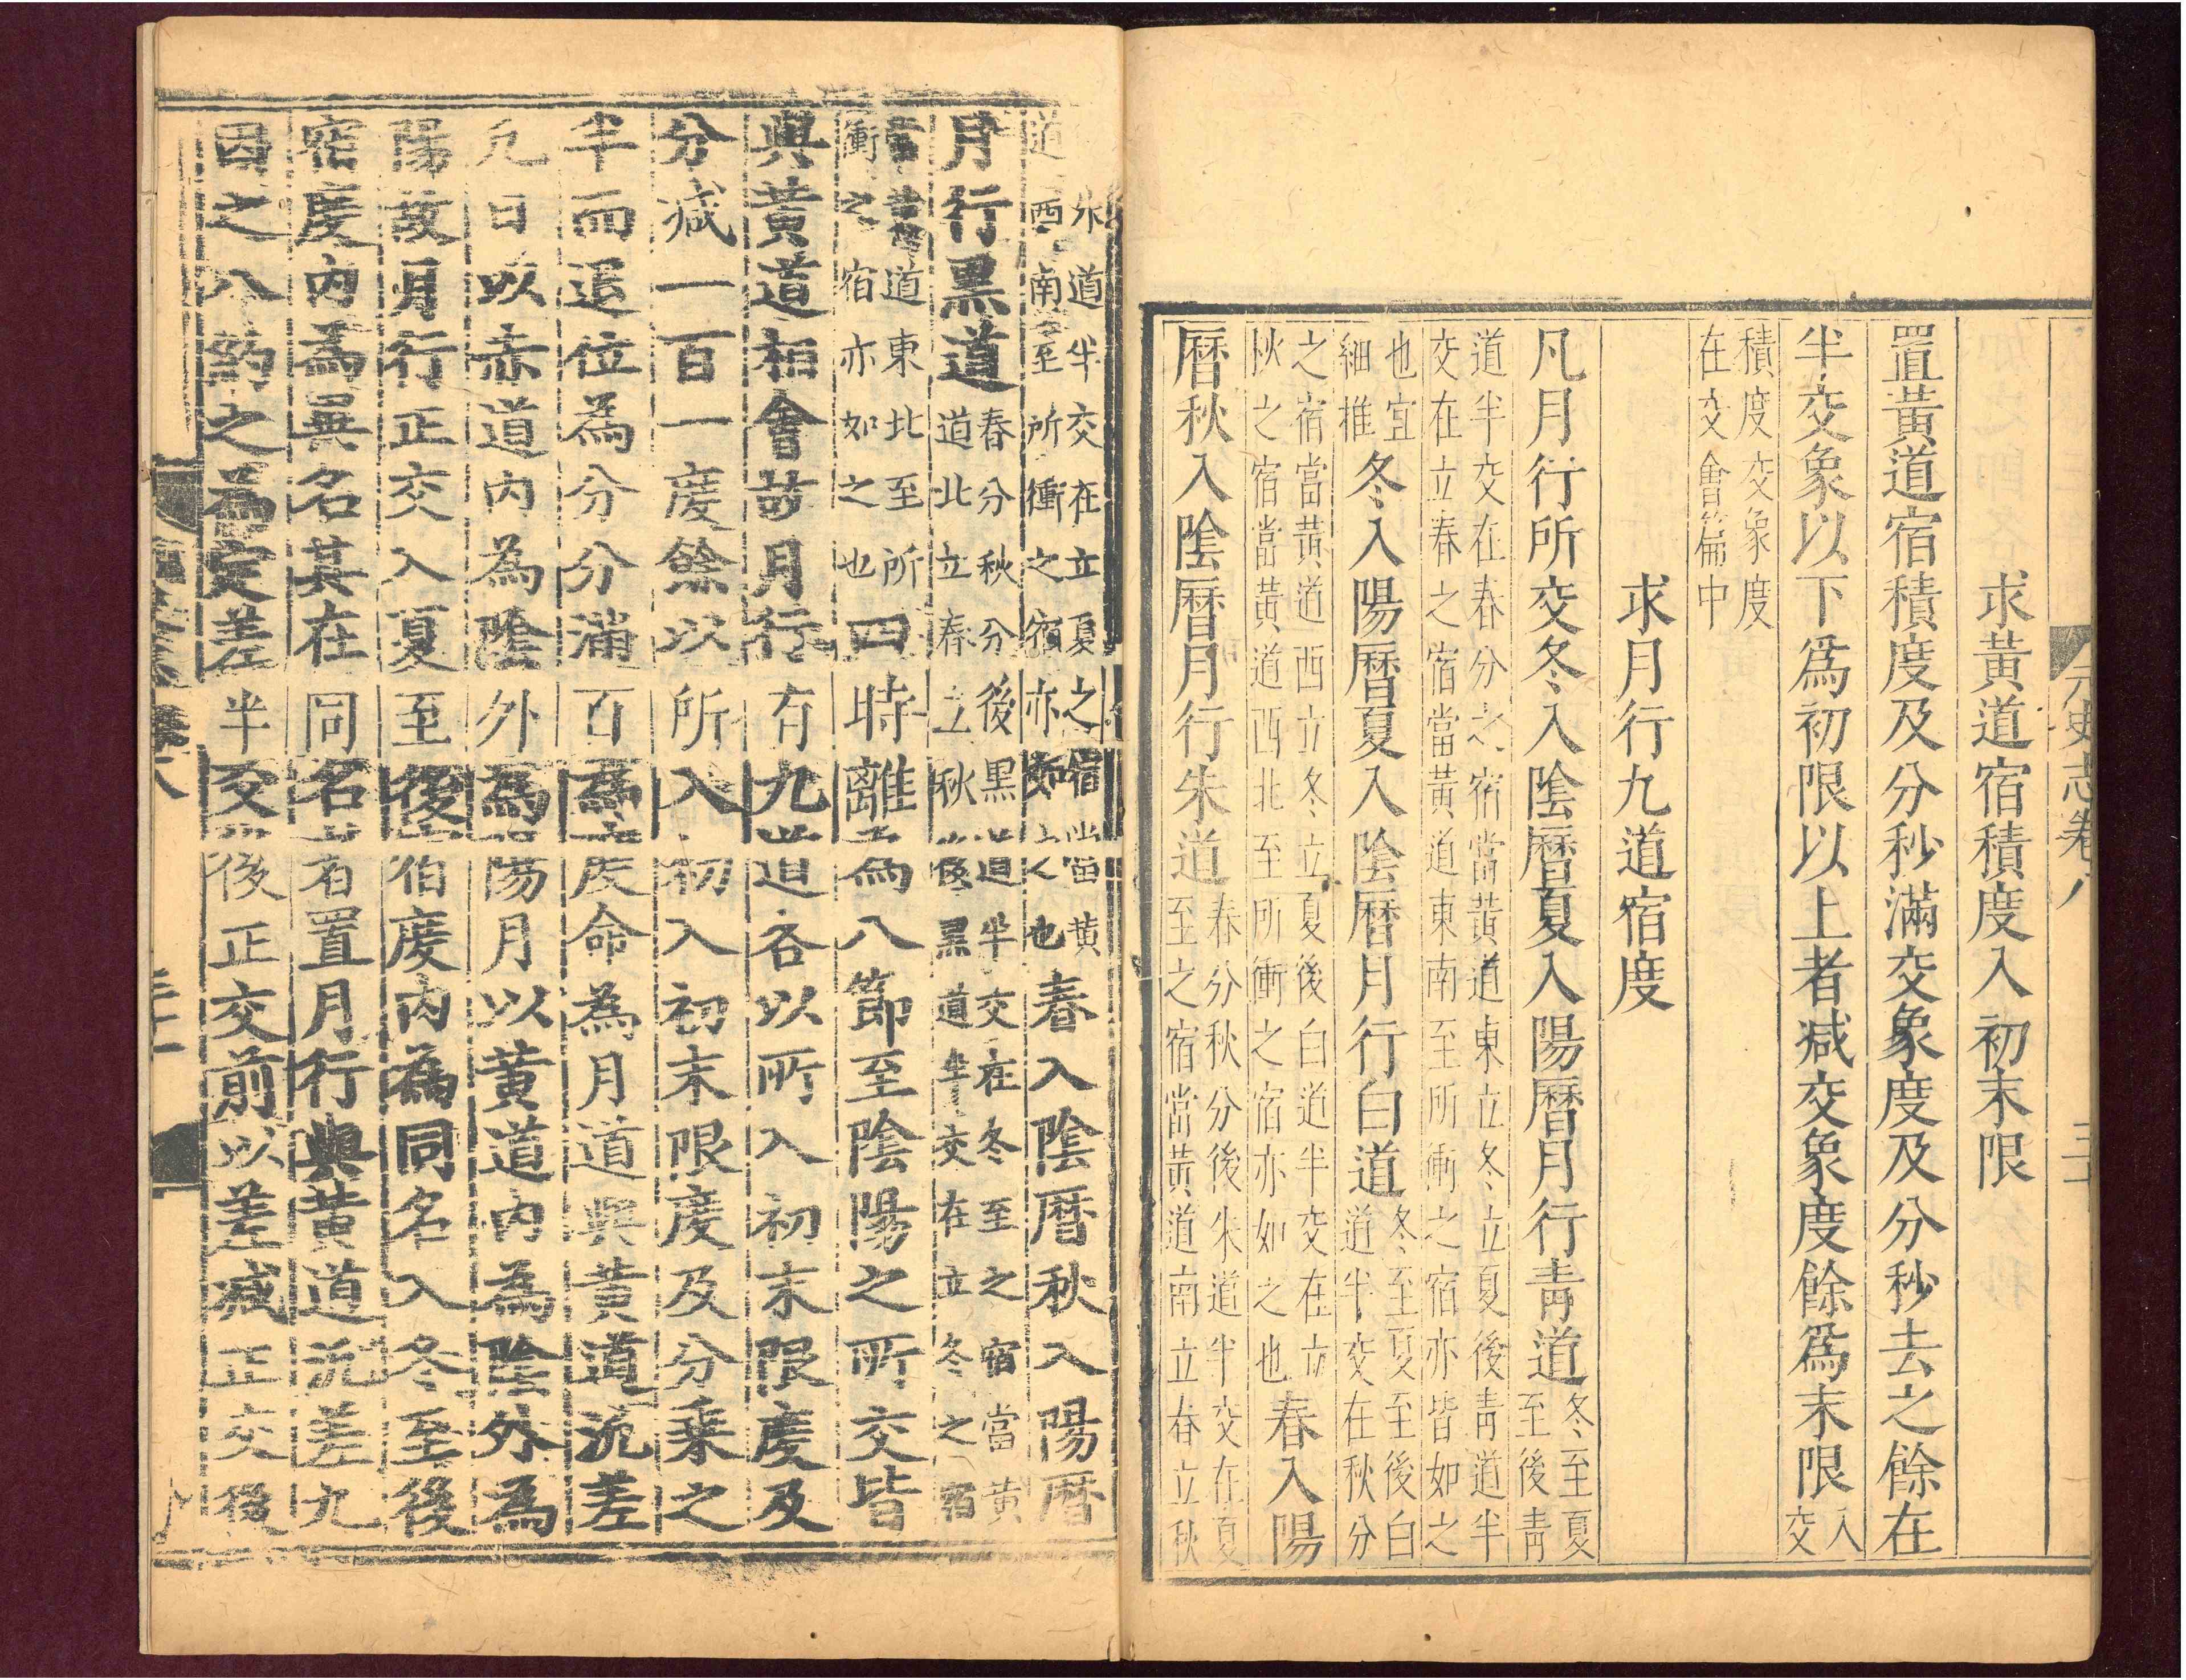 元史志卷八 三十
求黃道宿積度入初末限
置黃道宿積度及分秒滿交象度及分秒去之餘在
半交象以下爲初限以上者減交象度餘爲末限入交
積度交象度
在交會篇中
求月行九道宿度
凡月行所交冬入陰曆夏入陽曆月行靑道冬至夏至後靑
道半交在春分之宿當黃道東立冬立夏後靑道半
交在立春之宿當黃道東南至所衝之宿亦皆如之
也宜
細推
冬入陽曆夏入陰曆月行白道冬至夏至後白道半交在秋分
之宿當黃道西立冬立夏後白道半交在立
秋之宿當黃道西北至所衝之宿亦如之也春入陽
曆秋入陰曆月行朱道春分秋分後朱道半交在夏至之宿當黃道南立春立秋
後朱道半交在立夏之宿當黃
道西南至所衝之宿亦如之也春入陰曆秋入陽曆
月行黑道春分秋分後黑道半交在冬至之宿當黃道北立春立秋後黑道半交在立冬之宿
當黃道東北至所
衝之宿亦如之也四時離爲八節至陰陽之所交皆
與黃道相會故月行有九道各以所入初末限度及
分減一百一度餘以所入初末限度及分乘之
半而退位為分分滿百爲度命為月道與黃道泛差
凡日以赤道內為陰外爲陽月以黃道內為陰外爲
陽故月行正交入夏至後宿度內為同名入冬至後
宿度內為異名其在同名者置月行與黃道泛差九
因之八約之為定差半交後正交前以差減正交後